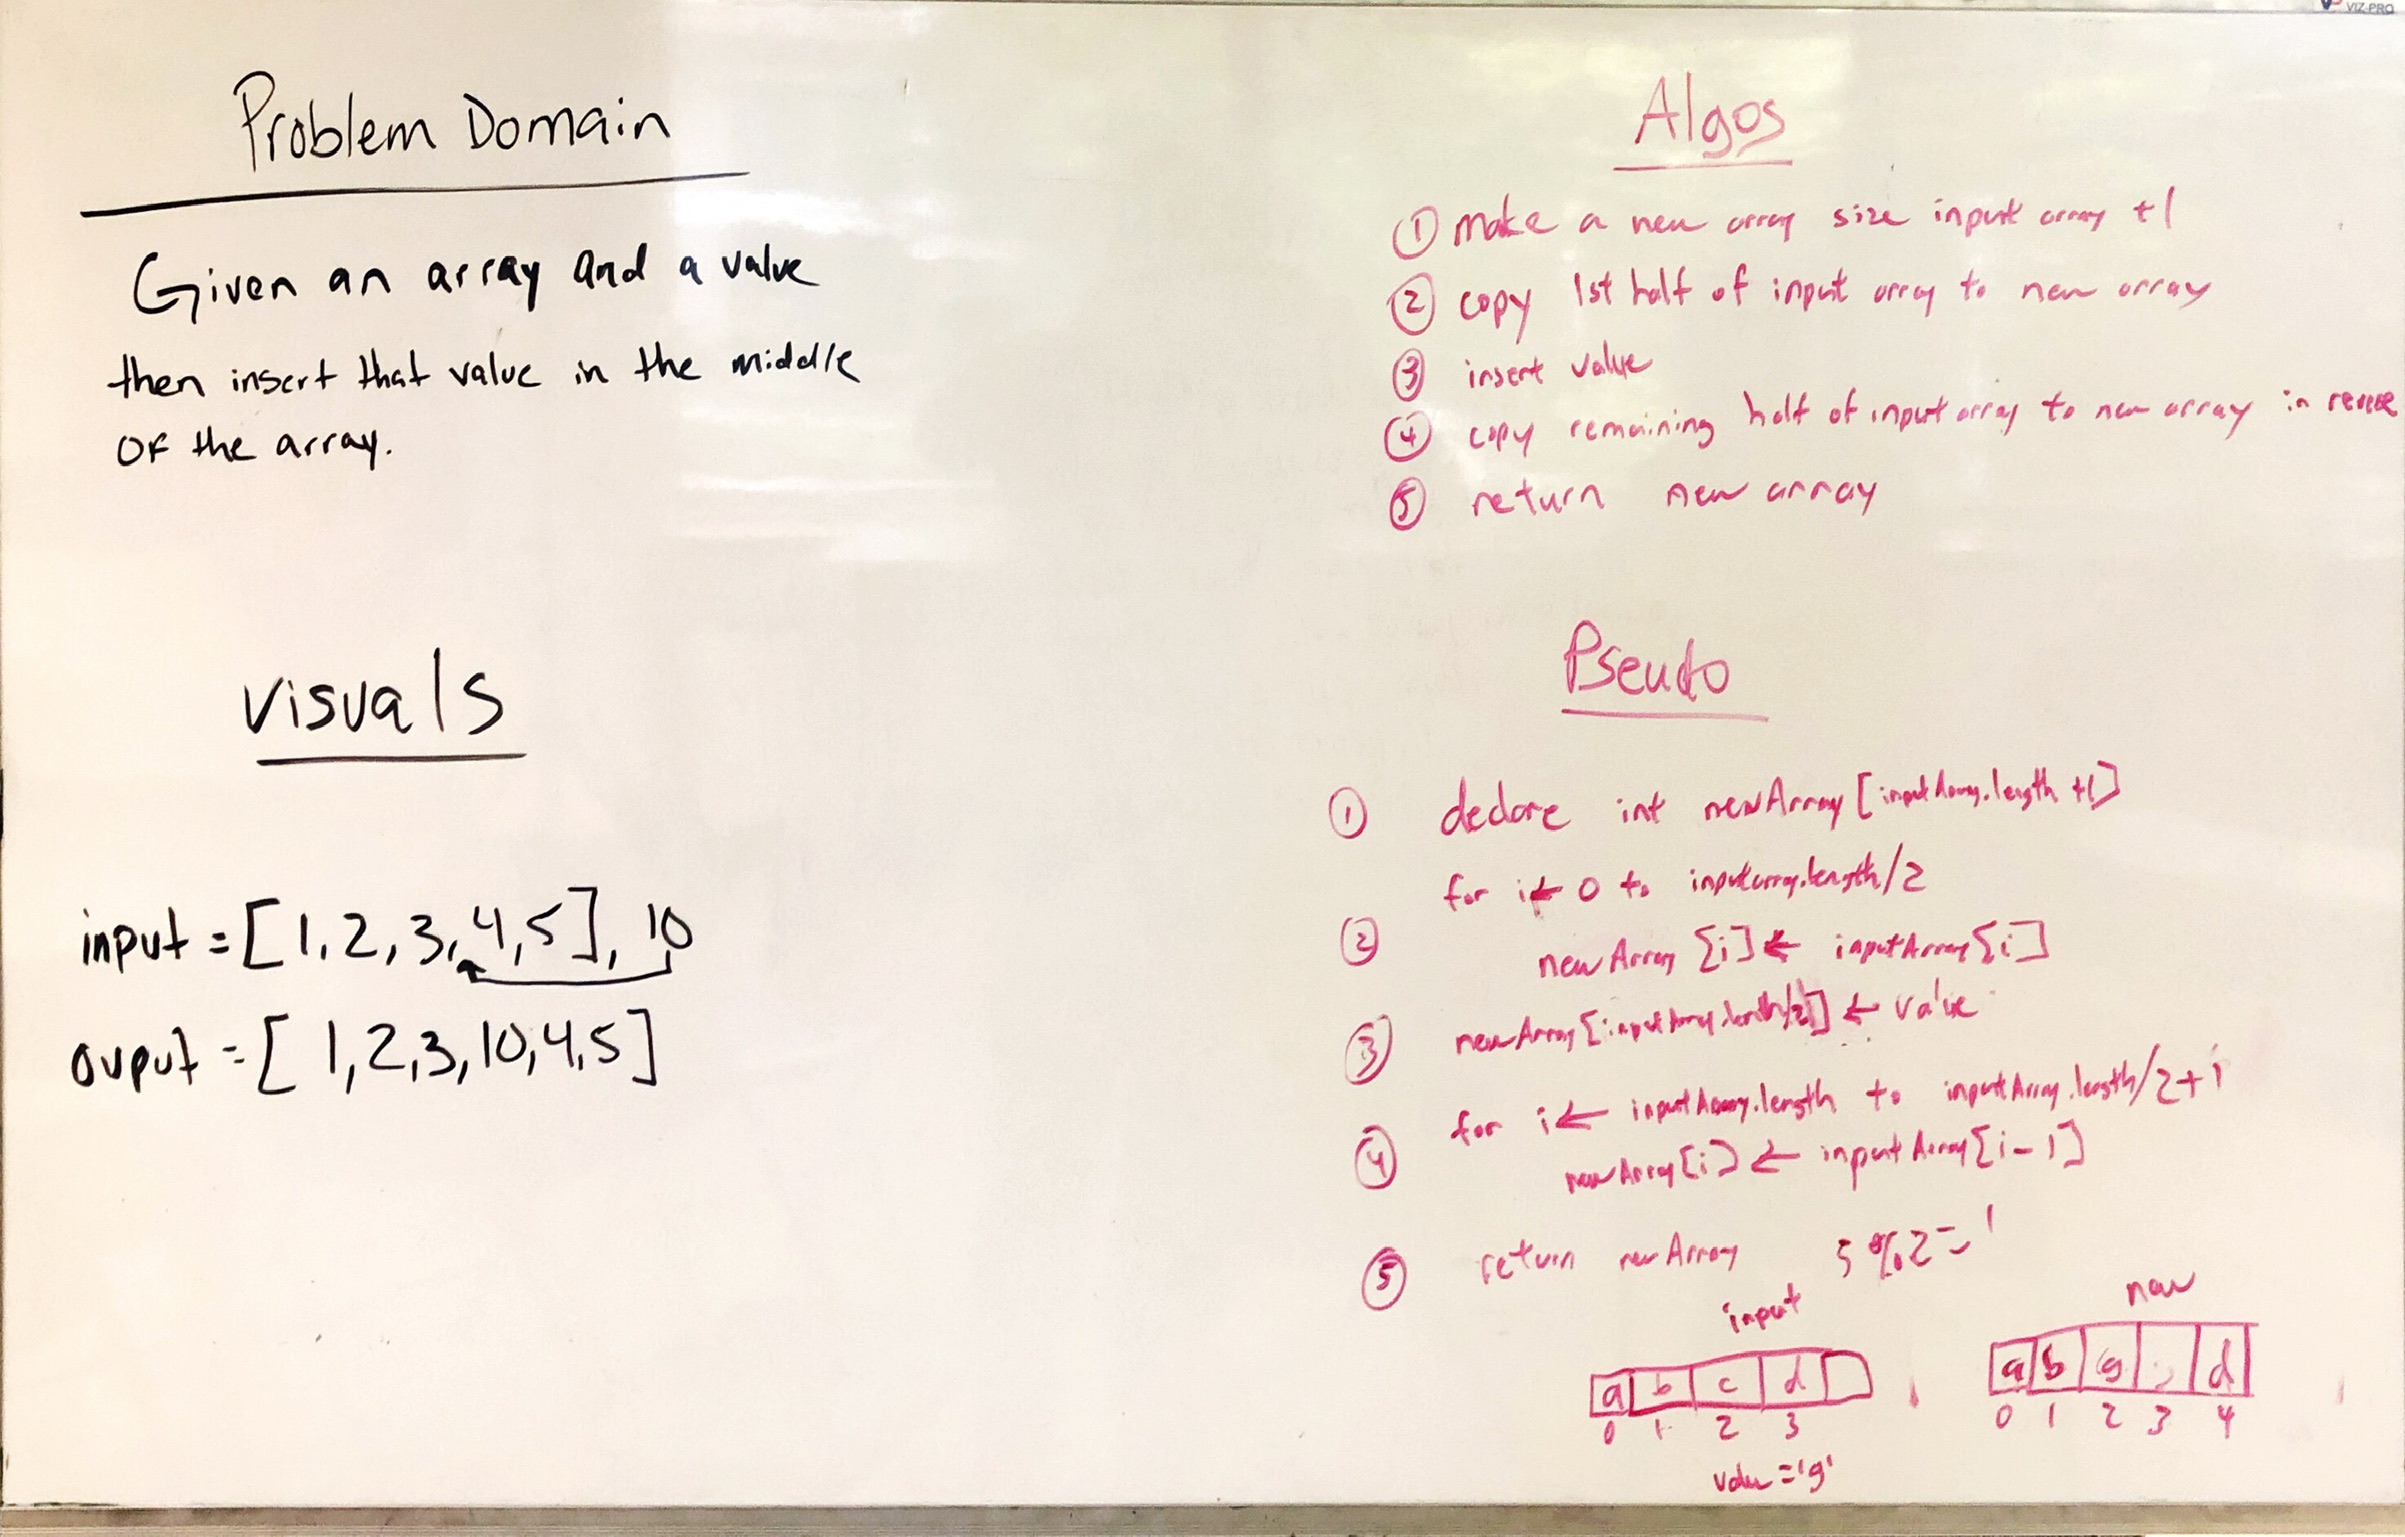 VIZ-PRO
Problem Domain
Given an array and a value
then insert that value in the middle
of the array.
Visuals
input = [1,2,3,4,5], 10
ouput = [1,2,3,10,4,5]
Algos
① make a new array size input array +1
② copy 1st half of input array to new array
③ insert value
④ copy remaining half of input array to new array in reverse
⑤ return new array
Pseudo
① declare int newArray [inputArray.length +1]
for i ← 0 to inputarray.length/2
② newArray [i] ← inputArray[i]
③ newArray[inputArray.length/2] ← value
for i ← inputArray.length to inputArray.length/2+1
④ newArray[i] ← inputArray[i-1]
⑤ return newArray 5%2=1
input
a b c d
0 1 2 3
value='g'
new
a b g d
0 1 2 3 4